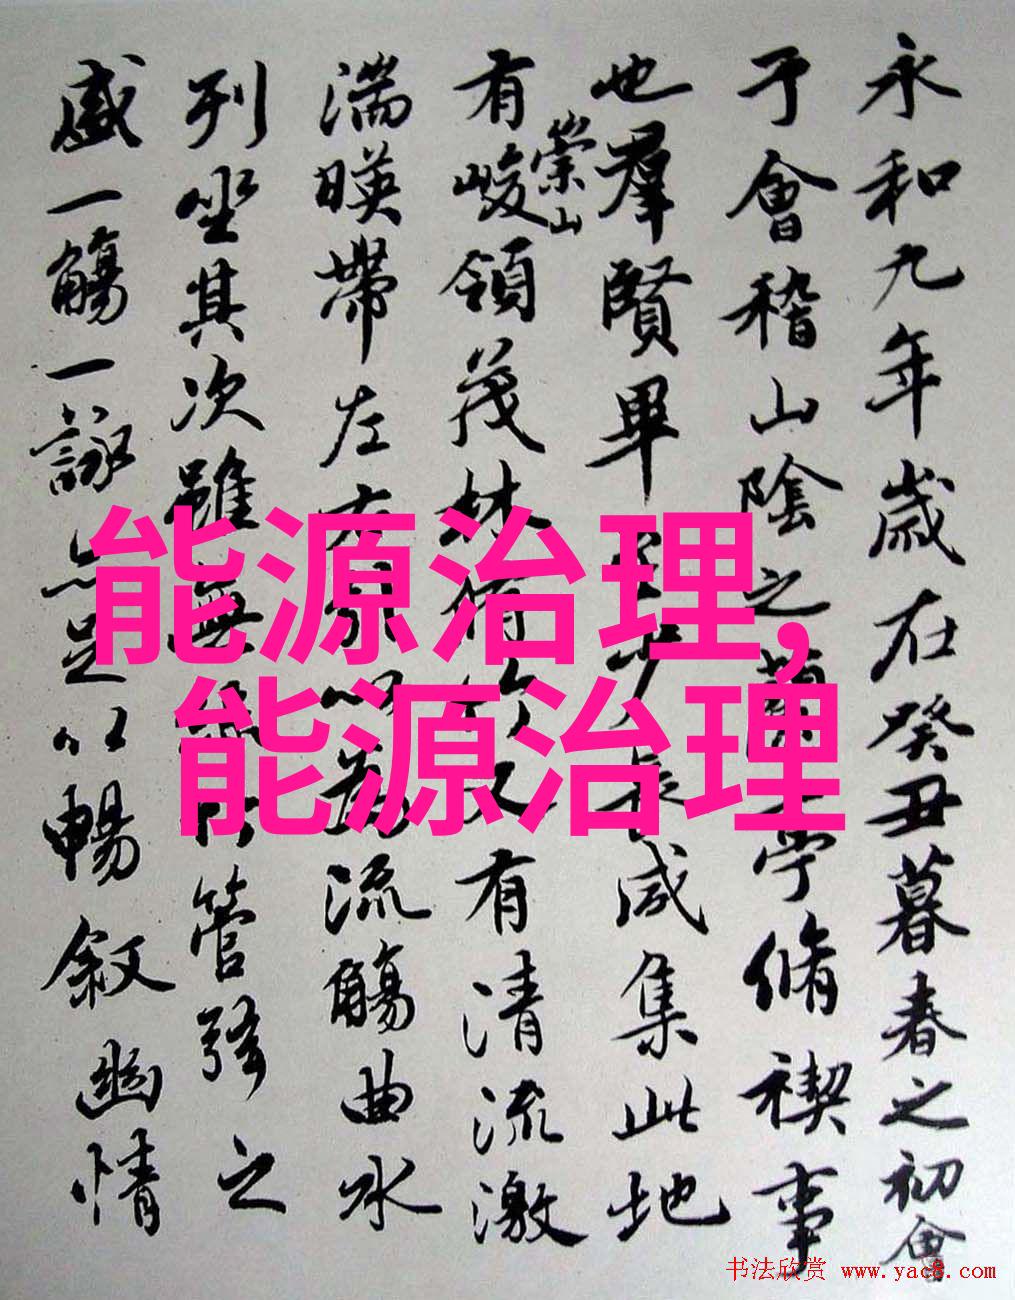 永和九年歲在癸丑暮春之初會
于會稽山陰之蘭亭脩禊事
也羣賢畢至少長咸集此地
有崇山峻領茂林脩竹又有清流激
湍暎帶左右引以為流觴曲水
列坐其次雖無管弦之
盛一觴一詠亦足以暢敘幽情
能源治理,
能源治理
书法欣赏 www.yac8.com